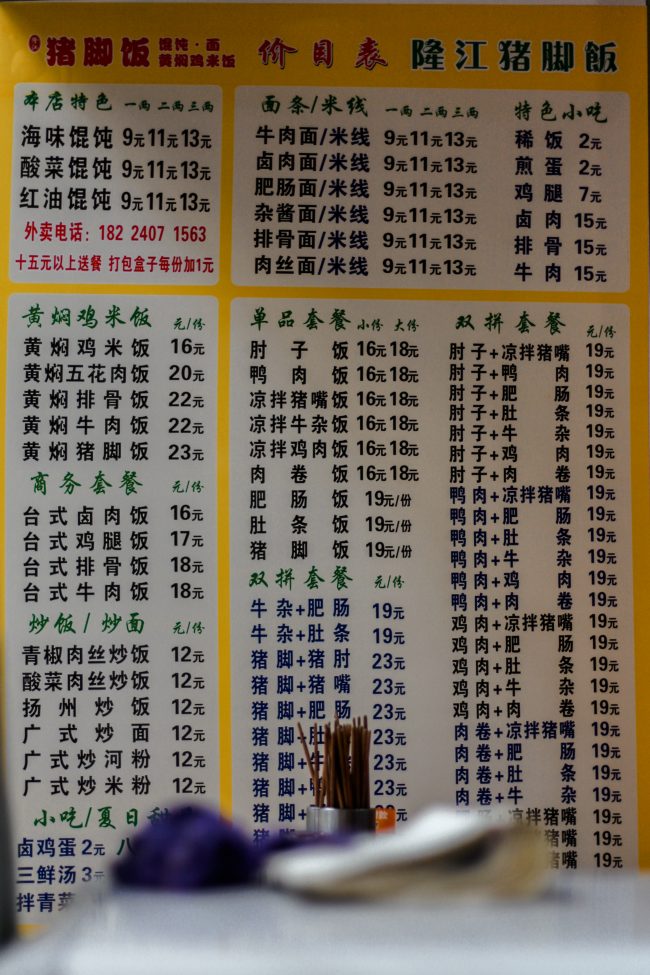 猪脚饭 馄饨·面 黄焖鸡米饭 价目表 隆江猪脚飯
本店特色 一两 二两 三两
海味馄饨 9元 11元 13元
酸菜馄饨 9元 11元 13元
红油馄饨 9元 11元 13元
外卖电话: 182 2407 1563
十五元以上送餐 打包盒子每份加1元
面条/米线 一两 二两 三两
牛肉面/米线 9元 11元 13元
卤肉面/米线 9元 11元 13元
肥肠面/米线 9元 11元 13元
杂酱面/米线 9元 11元 13元
排骨面/米线 9元 11元 13元
肉丝面/米线 9元 11元 13元
特色小吃
稀饭 2元
煎蛋 2元
鸡腿 7元
卤肉 15元
排骨 15元
牛肉 15元
黄焖鸡米饭 元/份
黄焖鸡米饭 16元
黄焖五花肉饭 20元
黄焖排骨饭 22元
黄焖牛肉饭 22元
黄焖猪脚饭 23元
商务套餐 元/份
台式卤肉饭 16元
台式鸡腿饭 17元
台式排骨饭 18元
台式牛肉饭 18元
炒饭/炒面 元/份
青椒肉丝炒饭 12元
酸菜肉丝炒饭 12元
扬州炒饭 12元
广式炒面 12元
广式炒河粉 12元
广式炒米粉 12元
小吃/夏日甜
卤鸡蛋 2元 八
三鲜汤 3元
拌青菜
单品套餐 小份 大份
肘子饭 16元 18元
鸭肉饭 16元 18元
凉拌猪嘴饭 16元 18元
凉拌牛杂饭 16元 18元
凉拌鸡肉饭 16元 18元
肉卷饭 16元 18元
肥肠饭 19元/份
肚条饭 19元/份
猪脚饭 19元/份
双拼套餐 元/份
牛杂+肥肠 19元
牛杂+肚条 19元
猪脚+猪肘 23元
猪脚+猪嘴 23元
猪脚+肥肠 23元
猪脚+肚 23元
猪脚+牛 23元
猪脚+ 23元
猪脚+ 元
双拼套餐 元/份
肘子+凉拌猪嘴 19元
肘子+鸭肉 19元
肘子+肥肠 19元
肘子+肚条 19元
肘子+牛杂 19元
肘子+鸡肉 19元
肘子+肉卷 19元
鸭肉+凉拌猪嘴 19元
鸭肉+肥肠 19元
鸭肉+肚条 19元
鸭肉+牛杂 19元
鸭肉+鸡肉 19元
鸭肉+肉卷 19元
鸡肉+凉拌猪嘴 19元
鸡肉+肥肠 19元
鸡肉+肚条 19元
鸡肉+牛杂 19元
鸡肉+肉卷 19元
肉卷+凉拌猪嘴 19元
肉卷+肥肠 19元
肉卷+肚条 19元
肉卷+牛杂 19元
猪嘴 19元
猪嘴 19元
猪嘴 19元